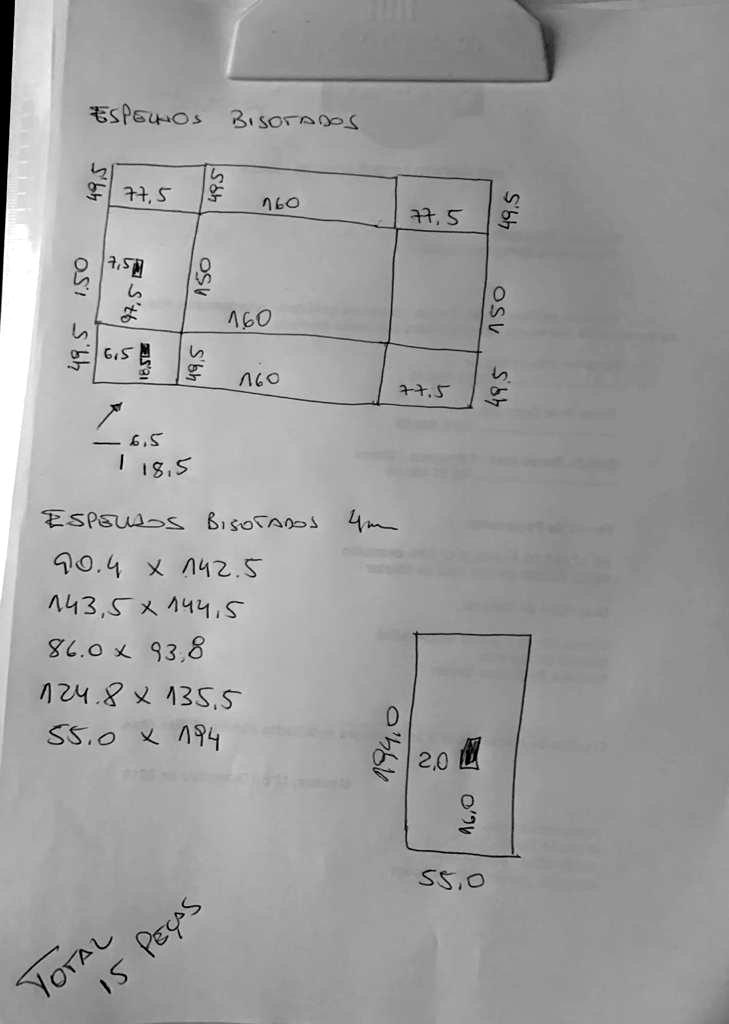 ESPELHOS BISOTADOS
49.5 77.5 49.5 160 77.5 49.5
1.50 7,5 97,5 150 160 150
49.5 6,5 18,5 49.5 160 77.5 49.5
6.5
18,5
ESPELHOS BISOTADOS 4mm
90.4 x 142.5
143,5 x 144,5
86.0 x 93,8
124.8 x 135,5
55.0 x 194
194,0 2,0 16,0
55,0
TOTAL
15 PEÇAS